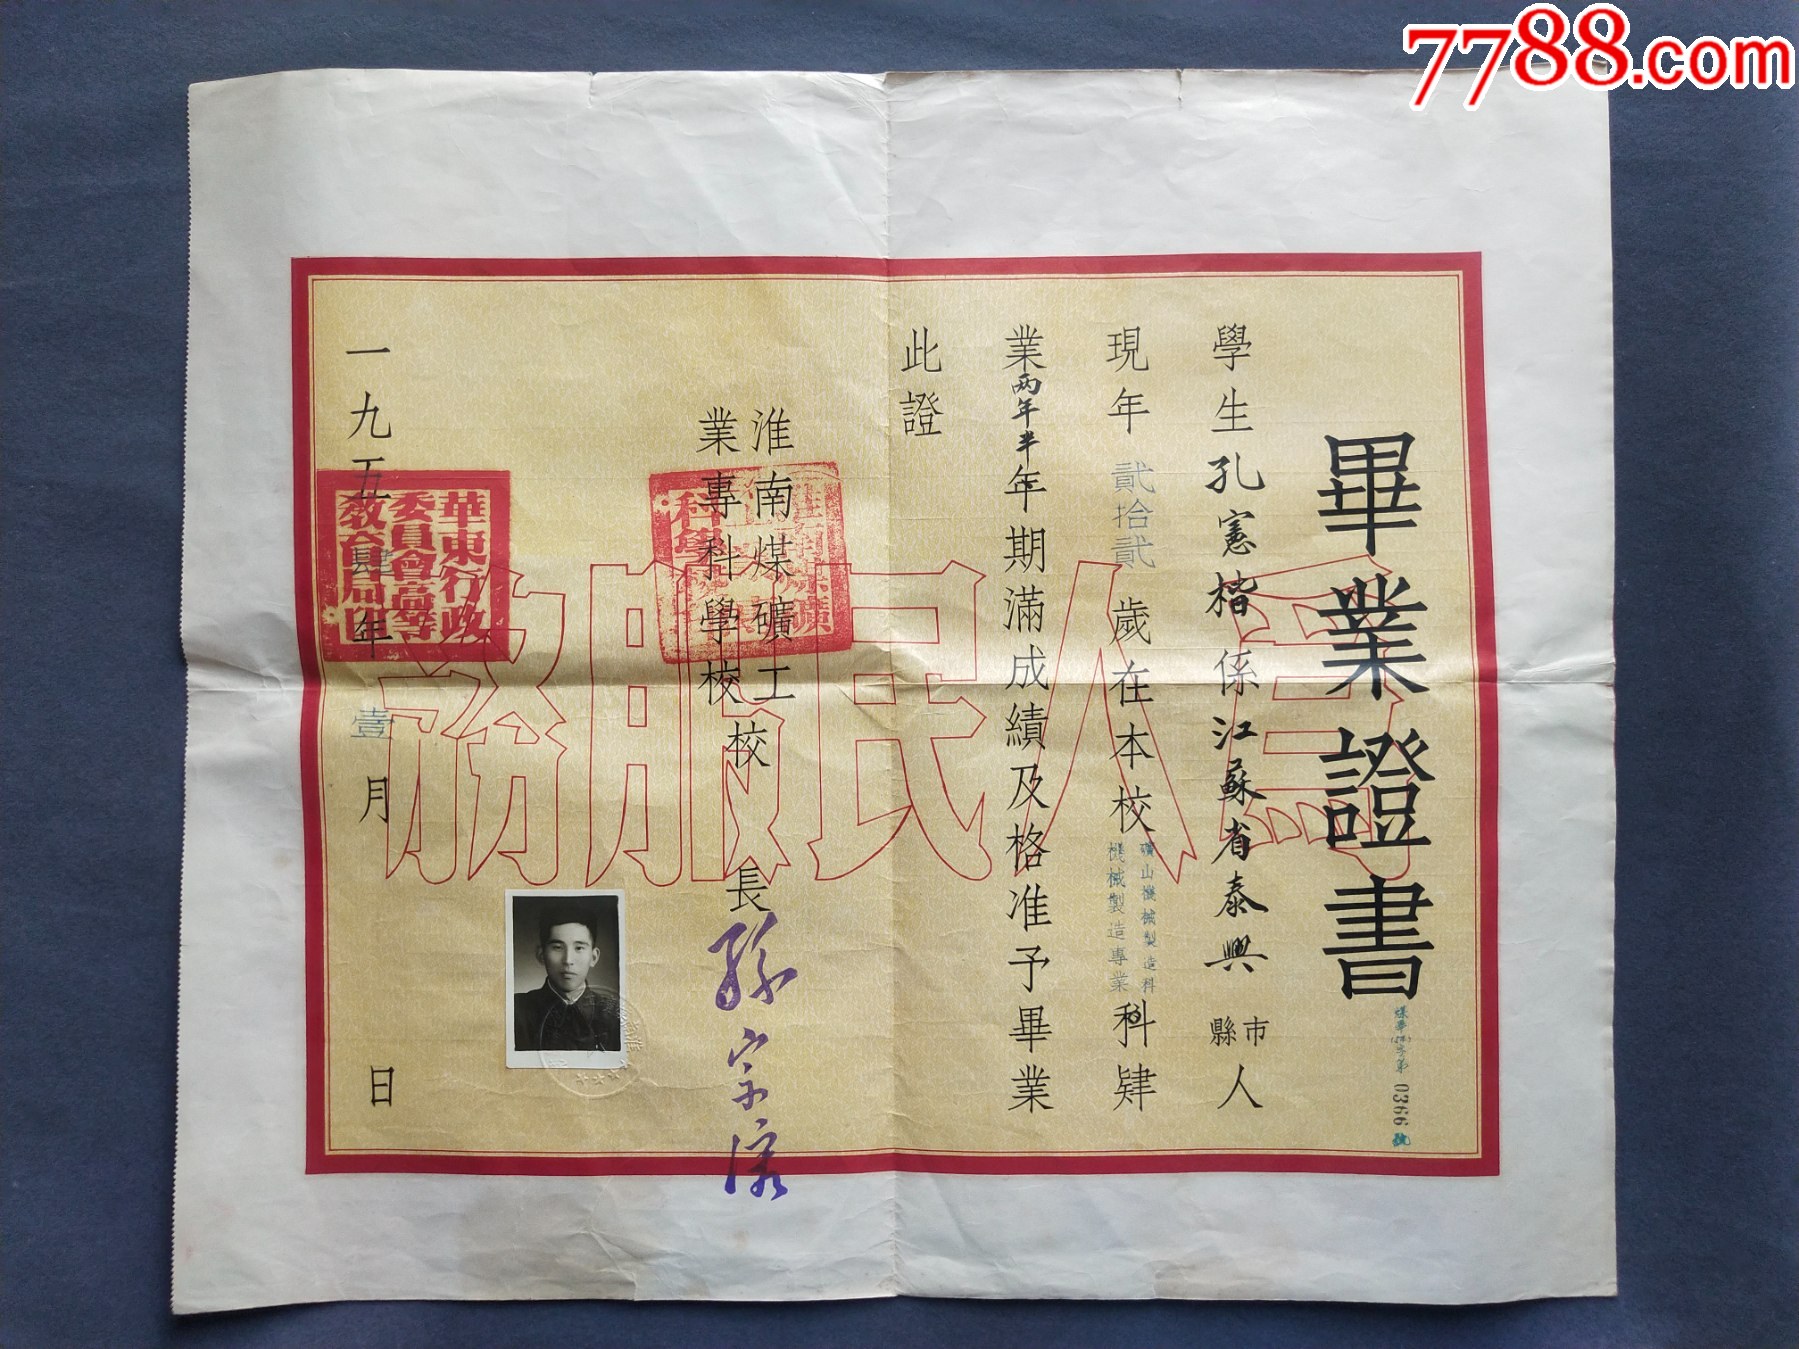 7788.com
畢業證書
煤畢(伍)字第0366號
學生孔憲楷係江蘇省泰興
市
縣
人
現年貳拾貳歲在本校
礦山機械製造科
機械製造專業
科肄
業两年半年期滿成績及格准予畢業
此證
淮南煤礦工
業專科學校
校長
一九五肆年壹月日
華東行政
委員會高等
教育局印
為人民服務